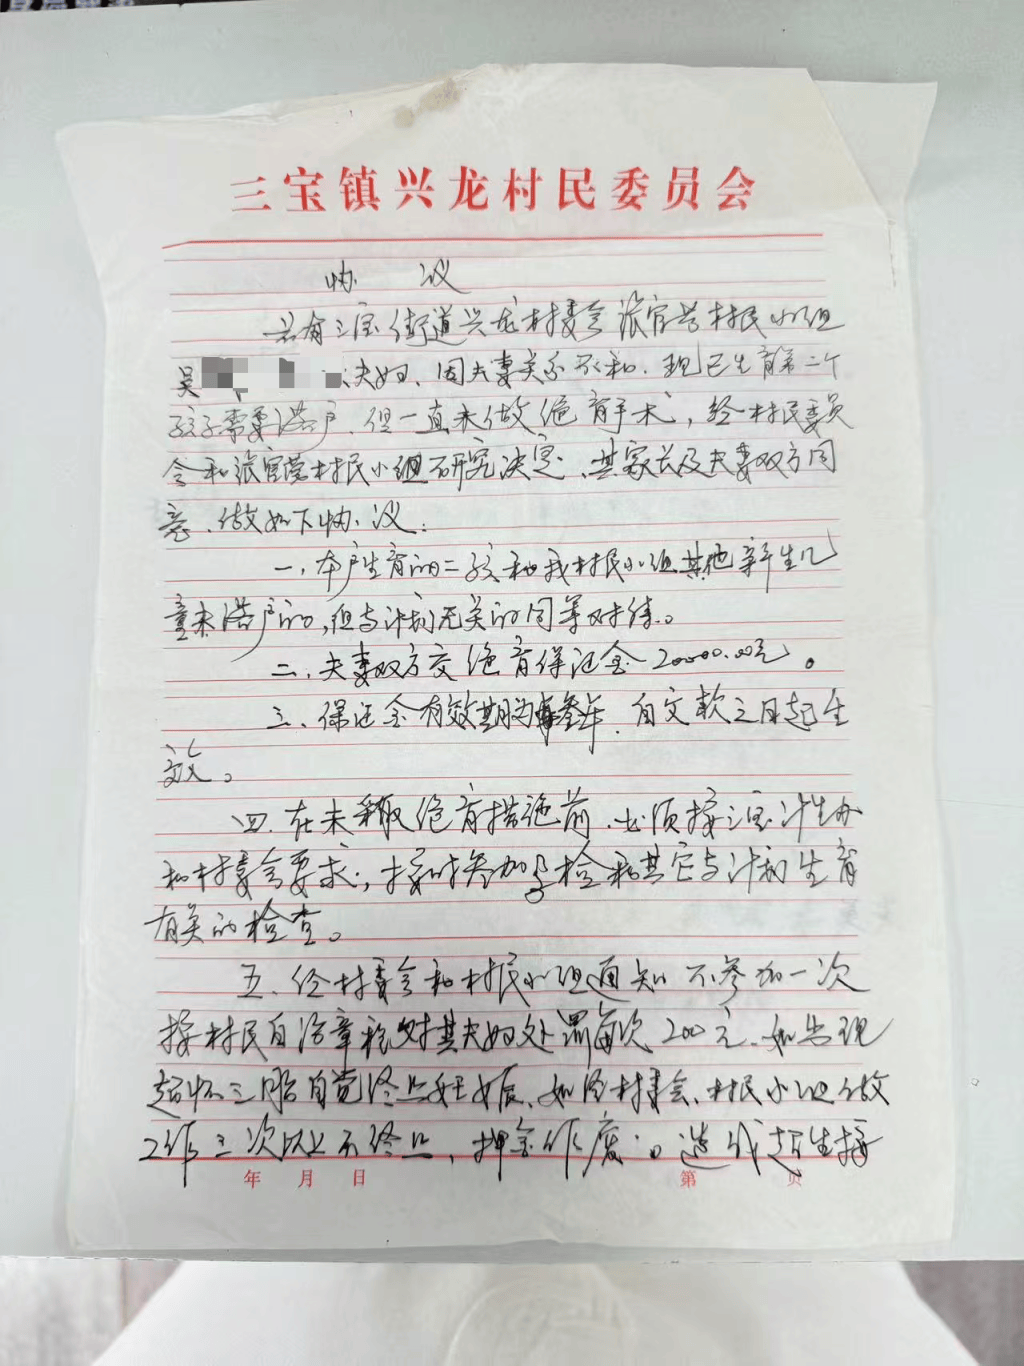 三宝镇兴龙村民委员会
协 议
兹有三宝街道兴龙村委会张官营村民小组
吴 夫妇、因夫妻关系不和.现已生育第二个
孩子需要落户.但一直未做绝育手术，经村民委员
会和张官营村民小组研究决定、其家长及夫妻双方同
意、做如下协议：
一，本户生育的二孩和我村民小组其他新生儿
童未落户的，但与计划无关的同等对待。
二、夫妻双方交绝育保证金20000.00元。
三、保证金有效期为叁年.自交款之日起生
效。
四.在未采取绝育措施前.必须按三宝计生办
和村委会要求，按时参加孕检和其它与计划生育
有关的检查。
五、经村委会和村民小组通知不参加一次
按村民自治章程对其夫妇处罚每次200元、如出现
超怀三胎自觉终止妊娠、如经村委会、村民小组做
工作三次以上不终止，押金作废。造成超生按
年 月 日 第 页